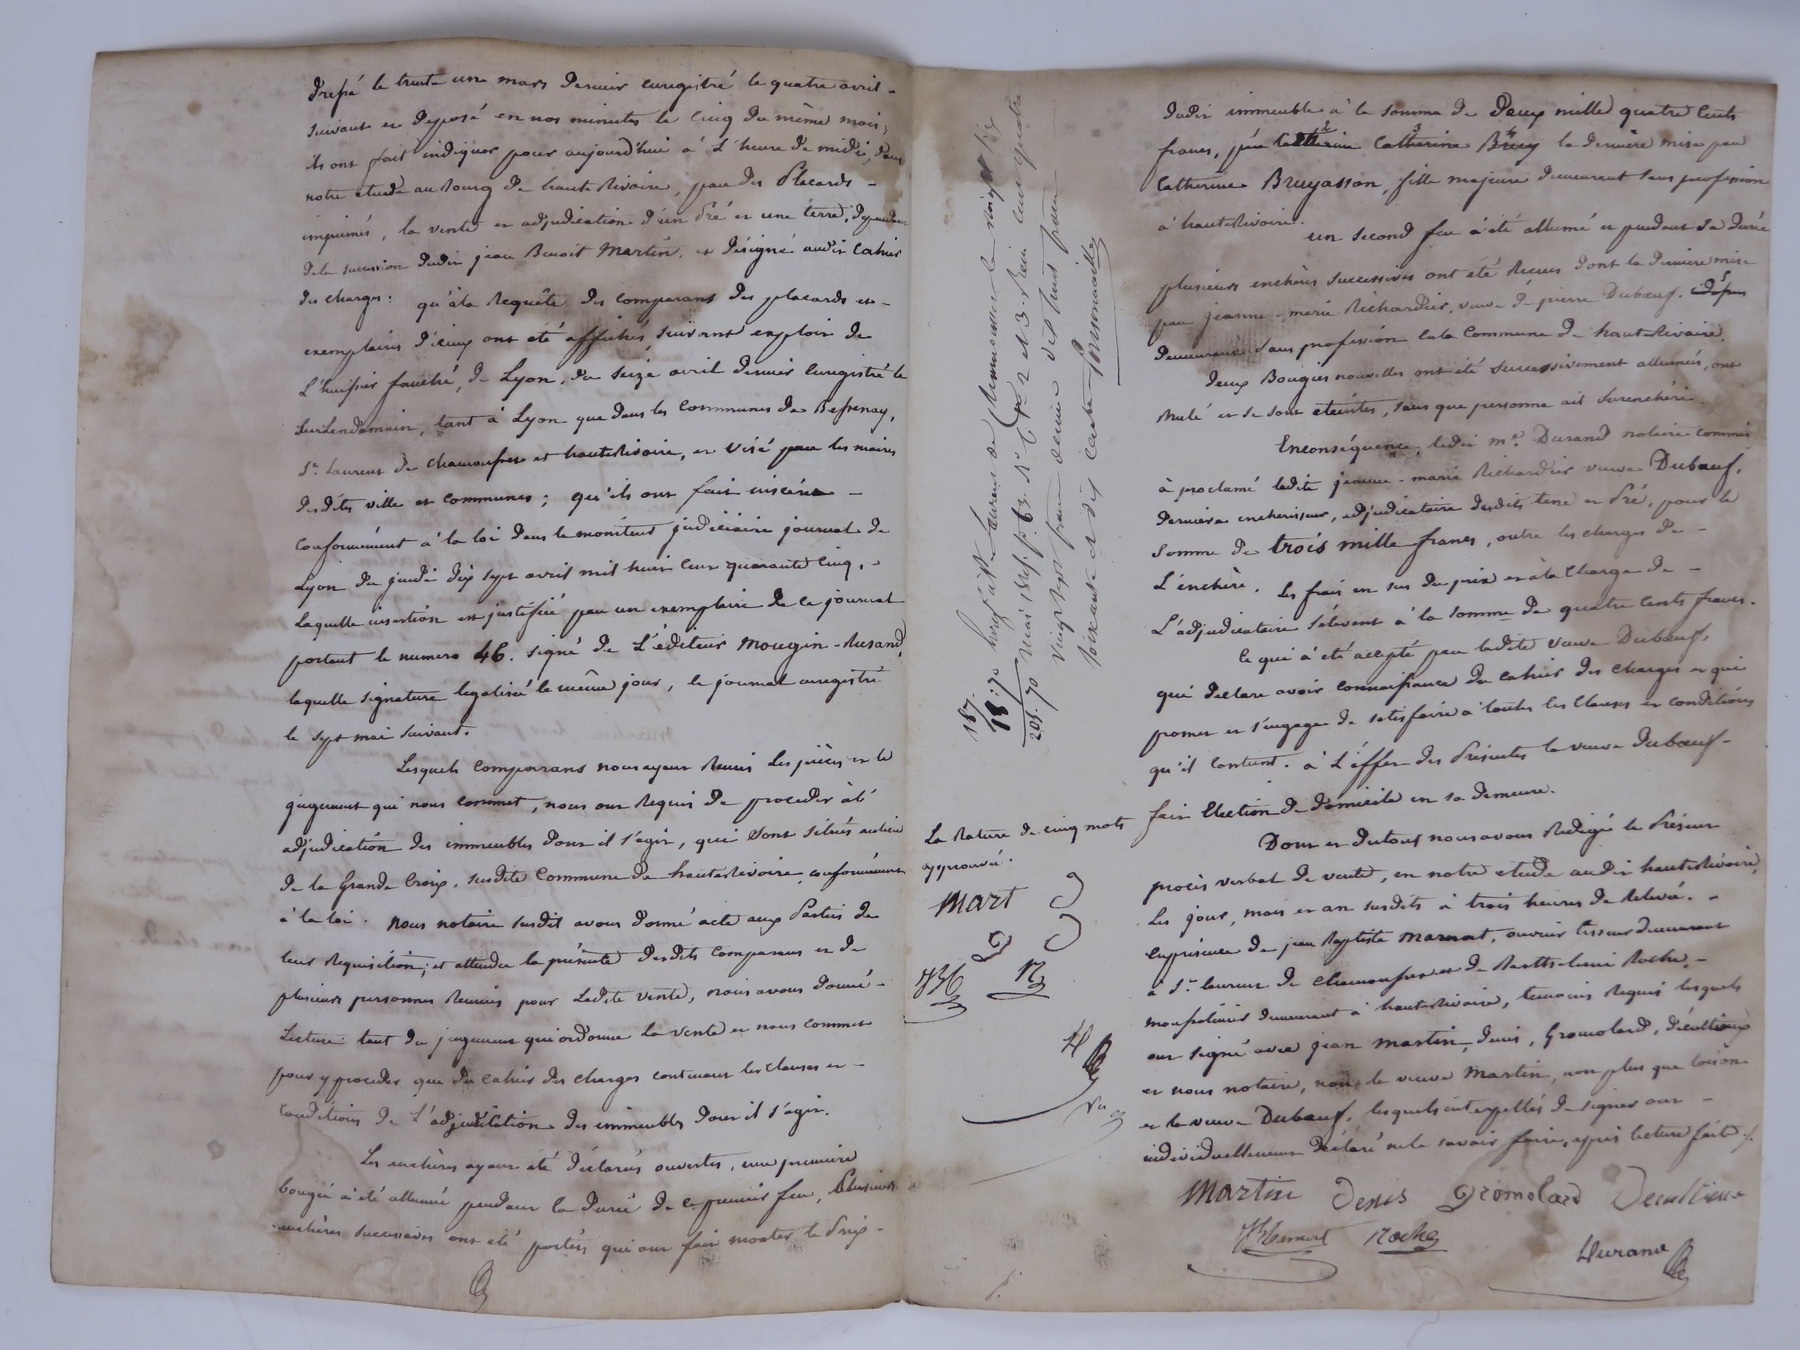 dressé le trente un mars dernier enregistré le quatre avril -
suivant et déposé en nos minutes le cinq du même mois;
ils ont fait indiquer pour aujourd'hui à l'heure de midi, dans
notre etude au bourg de haute Rivoire, par des Placards -
imprimés, la vente et adjudication d'un Pré et une terre, dependant
de la succession dudit jean Benoit Martin, et désigné audit Cahier
des charges: qu'à la Requête des comparans des placards et -
exemplaires d'iceux ont été affichés, suivant exploit de
L'huissier fauché, de Lyon, du seize avril dernier enregistré le
surlendemain, tant à Lyon que dans les communes de Bessenay,
St. Laurent de chamousset et haute Rivoire, et visé par les maires
desdites ville et communes; qu'ils ont fait insérer -
conformément à la loi dans le moniteur judiciaire journal de
Lyon du jeudi dix sept avril mil huit cent quarante cinq, -
Laquelle insertion est justifiée par un exemplaire de ce journal
portant le numero 46. signé de L'éditeur Mougin-Rusand,
laquelle signature legalisée le même jour, le journal enregistré
le sept mai suivant.
Lesquels comparans nous ayant Remis les pièces et le
jugement qui nous commet, nous ont Requis de proceder à l'
adjudication des immeubles dont il s'agit, qui sont situés au lieu
de la Grande Croix, susdite Commune de haute Rivoire, conformément
à la loi. Nous notaire susdit avons donné acte aux Parties de
leur Requisition; et attendu la présence desdits comparans et de
plusieurs personnes Reunies pour Ladite vente, nous avons donné -
Lecture tant du jugement qui ordonne la vente et nous commet
pour y proceder que du cahier des charges contenant les clauses et -
conditions de L'adjudication des immeubles dont il s'agit.
Les enchères ayant été déclarées ouvertes, une première
bougie a été allumée pendant la durée de ce premier feu, Plusieurs
enchères successives ont été portées qui ont fait monter le Prix -
dudit immeuble à la somme de Deux mille quatre Cents
francs, par Catherine Catherine Bruy la dernière mise par
Catherine Bruyasson, fille majeure demeurant sans profession
à haute Rivoire.
un second feu a été allumé et pendant sa durée
plusieurs enchères successives ont été Recues dont la dernière mise
par jeanne-marie Richardier, veuve de pierre Duboeuf.
demeurant sans profession en la Commune de haute Rivoire.
deux Bougies nouvelles ont été successivement allumées, ont
brulé et se sont eteintes, sans que personne ait surenchéri.
En conséquence, ledit me. Durand notaire commis
a proclamé ladite jeanne-marie Richardier veuve Duboeuf,
dernière encherisseur, adjudicataire desdits terre et Pré, pour la
somme de trois mille francs, outre les charges de -
L'enchère. Les frais en sus du prix et à la charge de -
L'adjudicataire s'élevent à la somme de quatre cents francs.
Ce qui a été accepté par ladite veuve Duboeuf,
qui déclare avoir connaissance du cahier des charges et qui
promet et s'engage de satisfaire à toutes les clauses et conditions
qu'il contient. à L'effet des Présentes la veuve Duboeuf -
fait Election de domicile en sa demeure.
Dont et du tout nous avons Redigé le Présent
procès verbal de vente, en notre etude audit haute Rivoire,
Les jour, mois et an susdits à trois heures de Relevée. -
En présence de jean Baptiste Marnat, ouvrier tisseur demeurant
à St. laurent de chamousset et de Barthelemi Roche, -
demeurant à haute Rivoire, temoins Requis lesquels
ont signé avec jean Martin, denis, Gromolard, Décultieux
et nous notaire, non la veuve Martin, non plus que
et la veuve Duboeuf, lesquels interpellés de signer ont -
individuellement déclaré ne le savoir faire, après lecture faite ./.
Martin Denis Gromolard Decultieux
Roche
Durand
La Rature de cinq mots
approuvée.
Mart G
D
R
187.
18:70
205.70